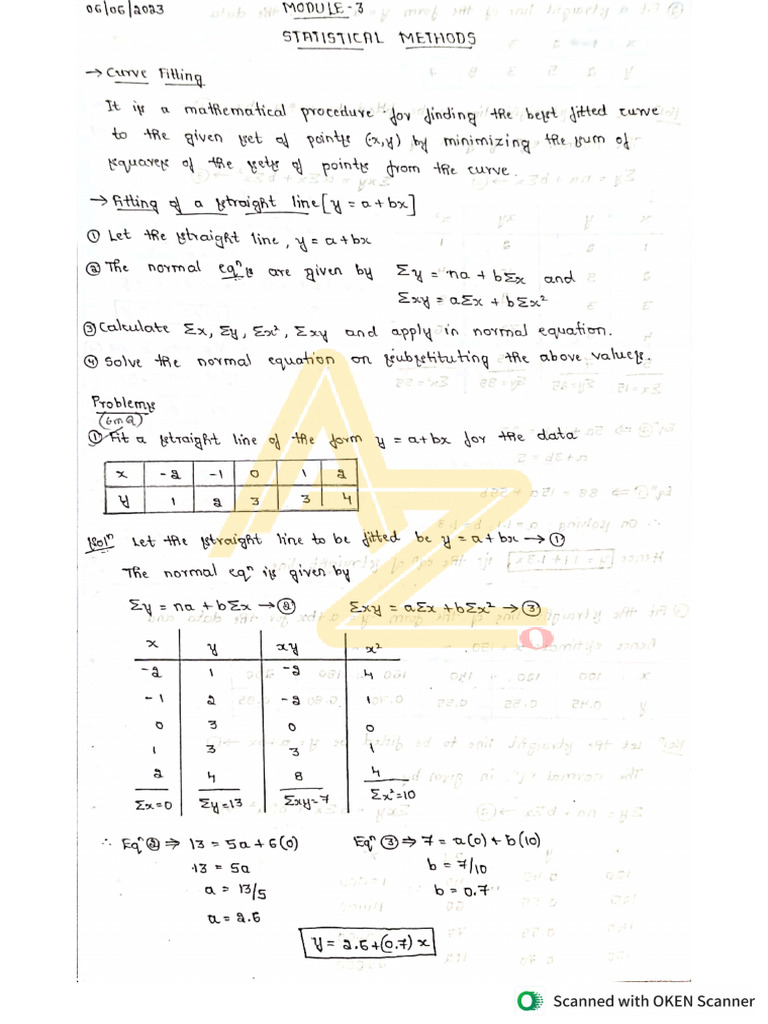 06/06/2023
MODULE-3
STATISTICAL METHODS
→ Curve Fitting
It is a mathematical procedure for finding the best fitted curve
to the given set of points (x,y) by minimizing the sum of
squares of the sets of points from the curve.
→ Fitting of a straight line [y = a + bx]
① Let the straight line, y = a + bx
② The normal eqⁿs are given by Σy = na + bΣx and
Σxy = aΣx + bΣx²
③ Calculate Σx, Σy, Σx², Σxy and apply in normal equation.
④ Solve the normal equation on substituting the above values.
Problems
(6mQ)
① Fit a straight line of the form y = a + bx for the data
x -2 -1 0 1 2
y 1 2 3 3 4
Solⁿ Let the straight line to be fitted be y = a + bx → ①
The normal eqⁿ is given by
Σy = na + bΣx → ② Σxy = aΣx + bΣx² → ③
x y xy x²
-2 1 -2 4
-1 2 -2 1
0 3 0 0
1 3 3 1
2 4 8 4
Σx=0 Σy=13 Σxy=7 Σx²=10
∴ Eqⁿ ② ⇒ 13 = 5a + 6(0) Eqⁿ ③ ⇒ 7 = a(0) + b(10)
13 = 5a b = 7/10
a = 13/5 b = 0.7
a = 2.6
y = 2.6 + (0.7) x
AZ
O
Scanned with OKEN Scanner